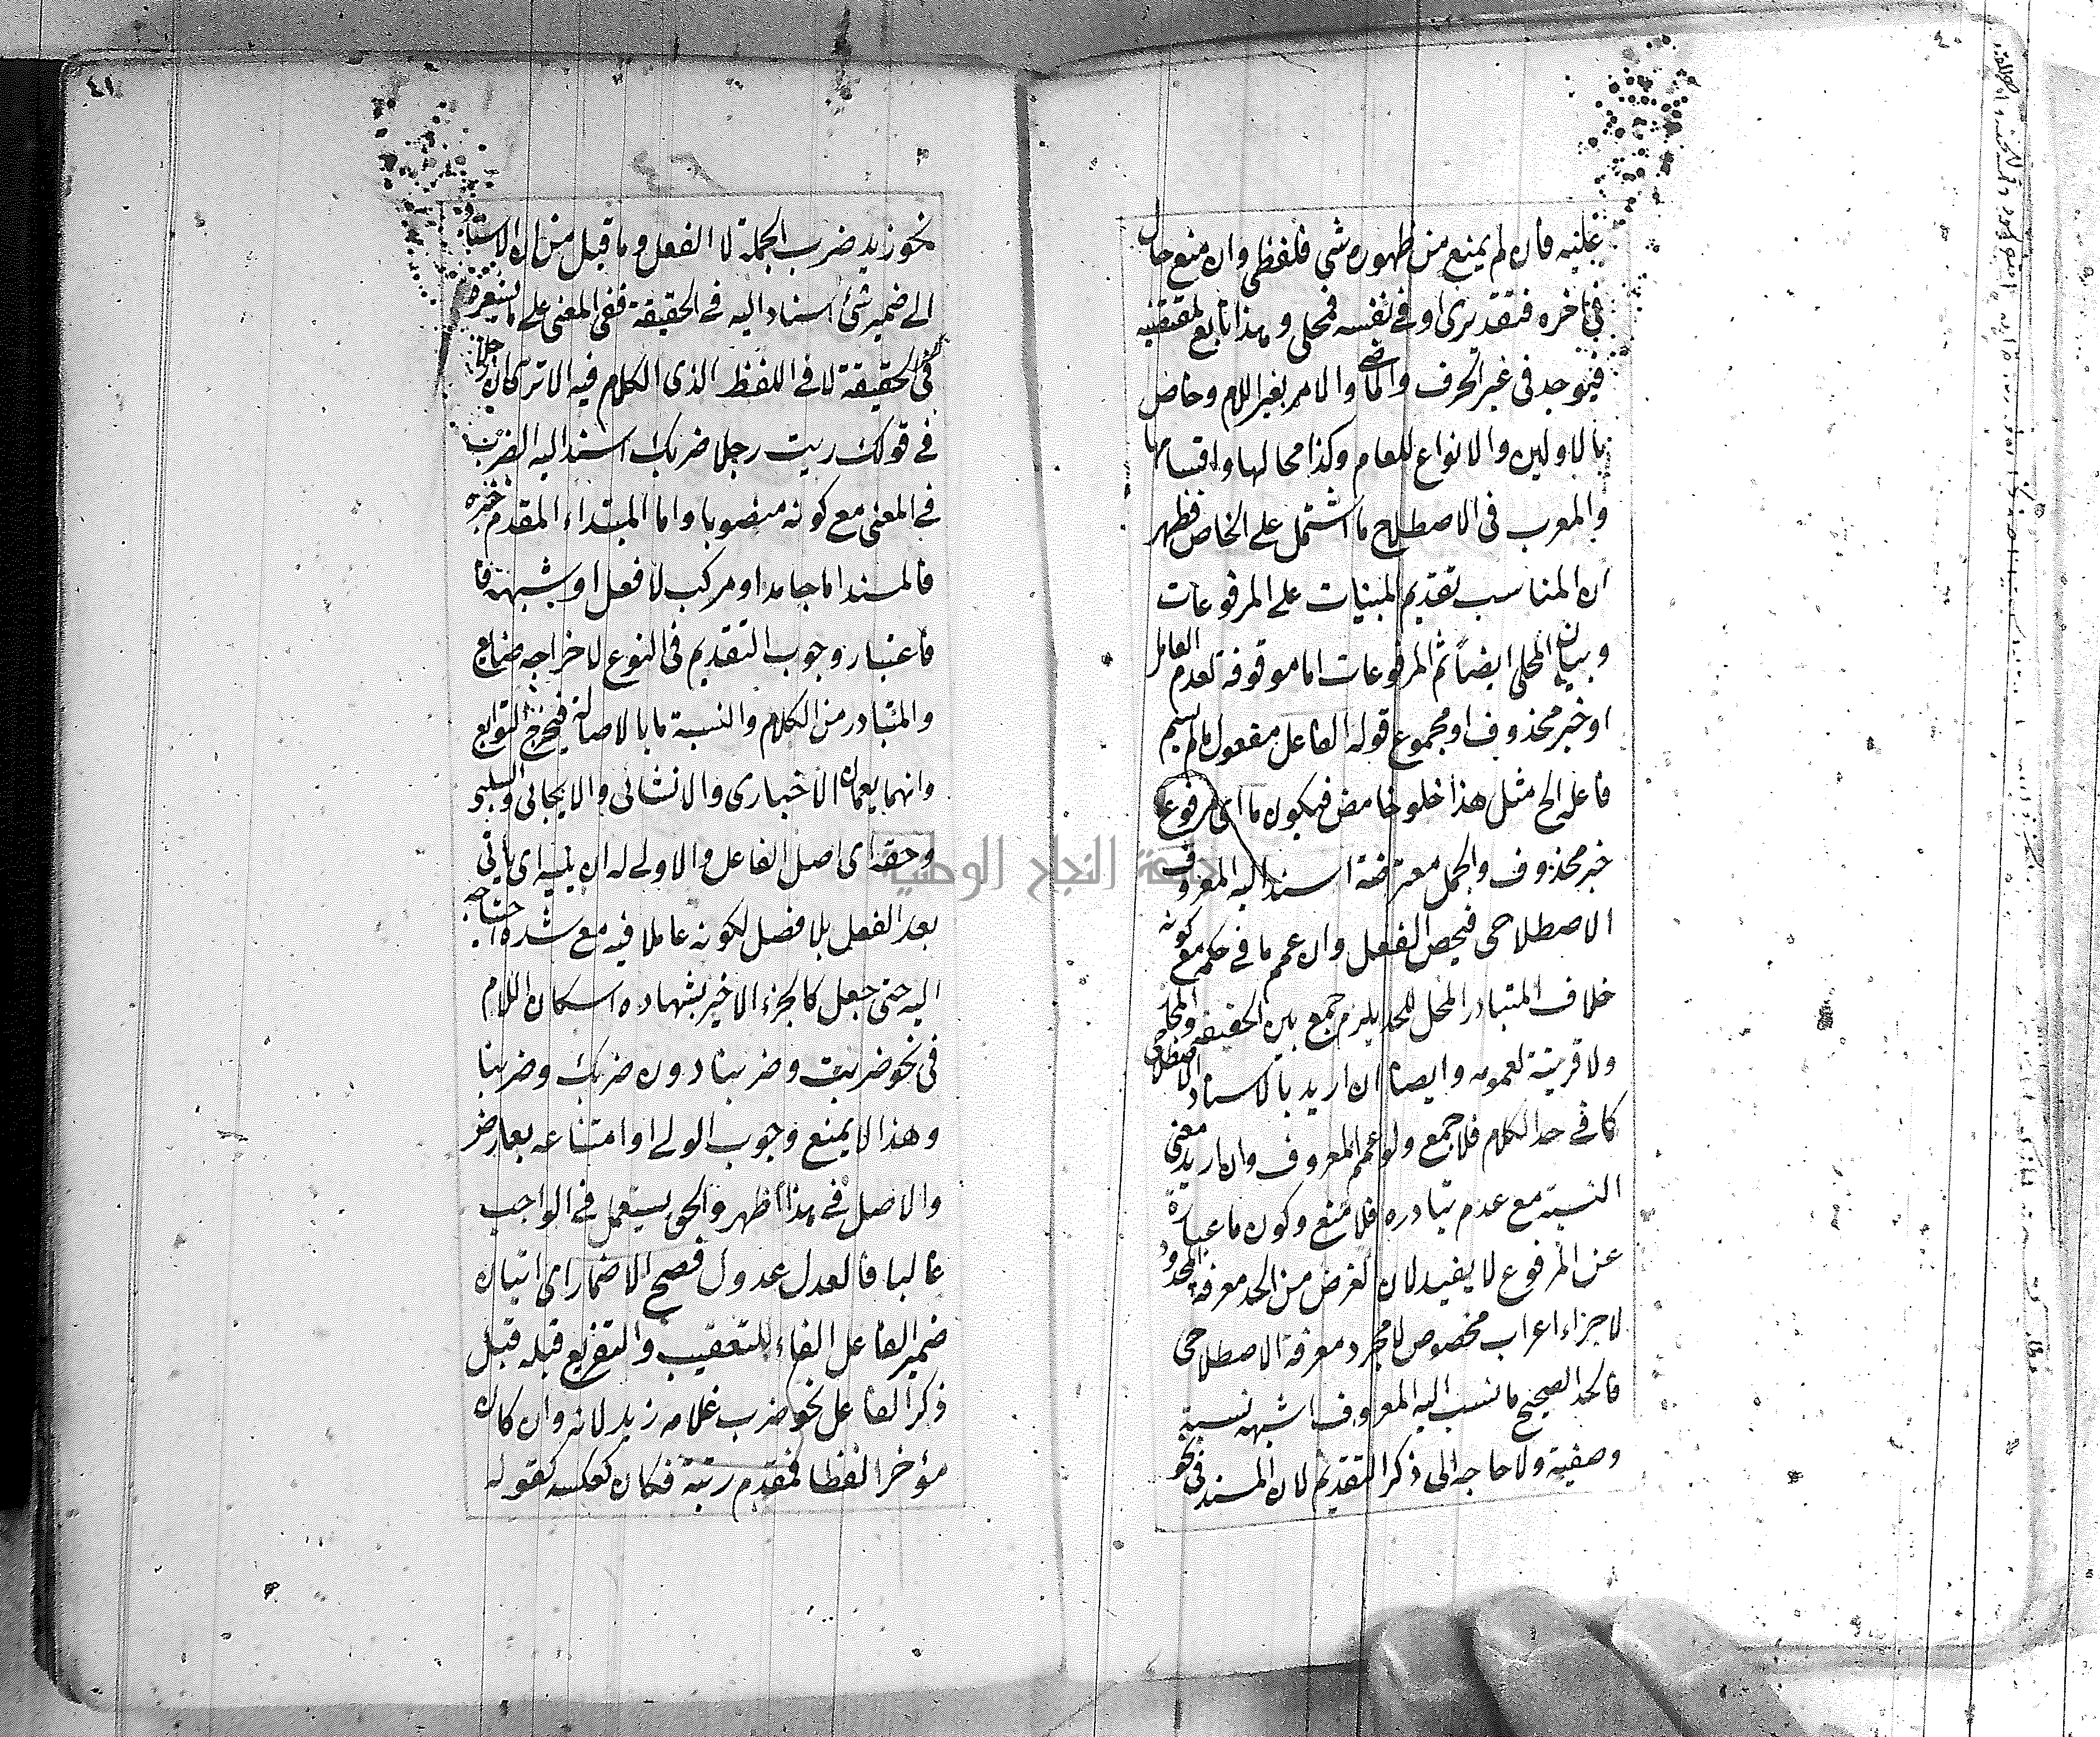 ٤٠
فان لم يمنع من ظهوره شي فلفظي وان منع حال
في اخره فتقديري او في نفسه فمحلي وهذا تابع لمقتضيه
فيوجد في غير الحرف والماضي والامر بغير اللام وخاص
بالاولين والانواع للعام وكذا محالها واقسامها
والمعرب في الاصطلاح ما اشتمل على الخاص فظهر
ان المناسب تقديم المبنيات على المرفوعات
وبيان المحلي ايضاً ثم المرفوعات اما موقوفة لعدم العامل
او خبر محذوف او مجموع قوله الفاعل مفعول مالم يسم
فاعله الخ مثل هذا خلو حامض فيكون ما اي مرفوع
خبر محذوف والجمل معترضة اسند اليه المعروف
الاصطلاحي فيخص الفعل وان عمم ما في حكمه مع كونه
خلاف المتبادر المخل للحد يلزم جمع بين الحقيقة والمجاز
ولا قرينة لعمومه وايضا ان اريد بالاسناد الاصطلاحي
كما في حد الكلام فلا جمع ولو عمم المعروف وان اريد معنى
النسبة مع عدم تبادره فلا منع وكون ما عبارة
عن المرفوع لا يفيد لان الغرض من الحد معرفة المحدود
لاجراء اعراب مخصوص لا مجرد معرفة الاصطلاحي
فالحد الصحيح ما نسب اليه المعروف او شبهه نسبة
وصفية ولا حاجه الى ذكر التقديم لان المسند في نحو
٤١
نحو زيد ضرب الجملة لا الفعل وما قيل من ان الاسناد
الى ضمير شئ اسناد اليه في الحقيقة ففي المعنى على ما يشعره
في الحقيقة لا في اللفظ الذي الكلام فيه الا ترى ان رجلا
في قولك ريت رجلا ضربك اسند اليه الضرب
في المعنى مع كونه منصوبا واما المبتداء المقدم خبره
فالمسند اما جامد او مركب لا فعل او شبهه
فاعتبار وجوب التقديم في النوع لاخراجه ضايع
والمتبادر من الكلام والنسبة ما بالاصالة فيخرج التوابع
وانهما يعمان الاخباري والانشائي والايجابي والسلبي
وحقه اي اصل الفاعل والاولى له ان يليه اي يأتي
بعد الفعل بلا فصل لكونه عاملا فيه مع شدة احتياجه
اليه حتى جعل كالجزء الاخير بشهادة اسكان اللام
في نحو ضربت وضربنا دون ضربك وضربنا
وهذا لا يمنع وجوب الولي او امتناعه بعارض
والاصل في هذا اظهر والحق يستعمل في الواجب
غالبا فالعدل عدول فصح الاضمار اي اتيان
ضمير الفاعل الفاء للتعقيب والتفريع قبله قبل
ذكر الفاعل نحو ضرب غلامه زيد لانه وان كان
مؤخرا لفظا فمقدم رتبة فكان كعكسه كقوله
جامعة النجاح الوطنية